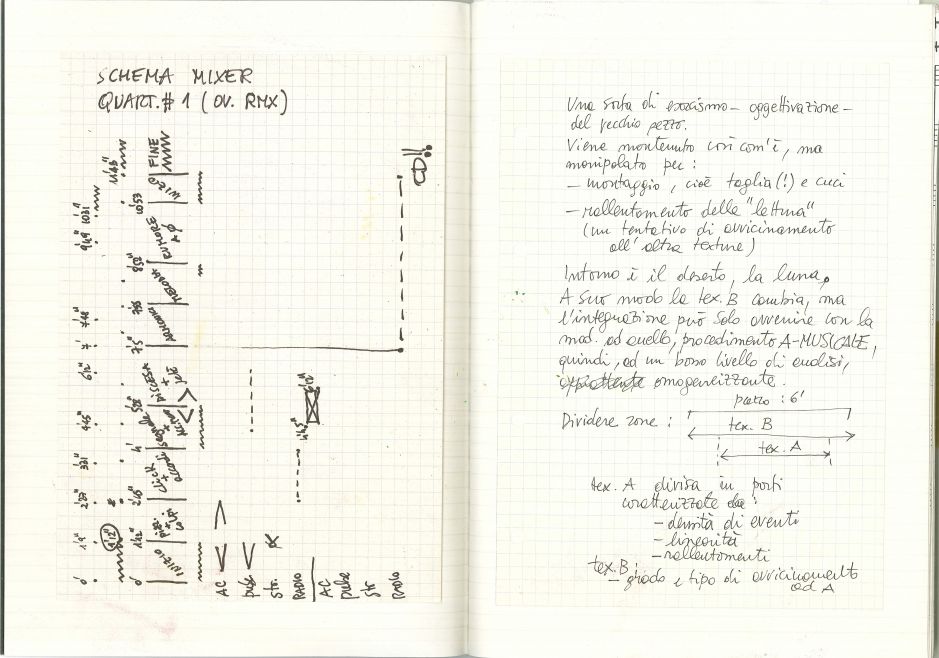 SCHEMA MIXER
QUART. # 1 (OV. RMX)
0'
1'9"
2'27"
3'21"
4'45"
6'12"
7'
7'48"
9'49"
10'31"
11'43"
4'12"
0'
1'42
2'45
4'
5'28
7'5"
7'55
8'52"
10'53
INIZIO
CLICK + ACCORDI
SEGNALE
RUMORE A Ø
FINE
AC
pulse
Str.
RADIO
AC
pulse
Str
RADIO
4'45"
6'12"
CD!!
Una sorta di esorcismo – oggettivazione –
del vecchio pezzo.
Viene mantenuto così com'è, ma
manipolato per:
– montaggio, cioè taglia(!) e cuci
– rallentamento della "lettura"
(un tentativo di avvicinamento
all'altra texture)
Intorno è il deserto, la luna.
A suo modo la tex. B cambia, ma
l'integrazione può solo avvenire con la
mod. ad anello, procedimento A-MUSICALE,
quindi, ad un basso livello di analisi,
omogeneizzante.
Dividere zone:
pezzo : 6'
tex. B
tex. A
tex. A divisa in parti
caratterizzate da:
– densità di eventi
– linearità
– rallentamenti
tex. B:
– grado e tipo di avvicinamento
ad A